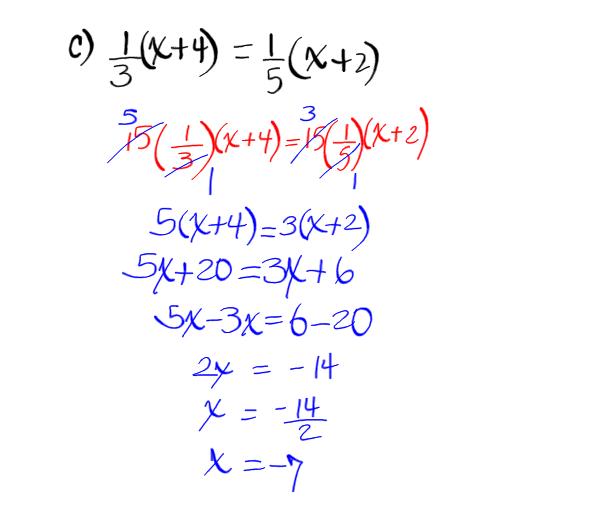 c) 1/3(x+4) = 1/5(x+2)
5 3
15(1/3)(x+4)=15(1/5)(x+2)
1 1
5(x+4)=3(x+2)
5x+20=3x+6
5x-3x=6-20
2x = -14
x = -14/2
x = -7